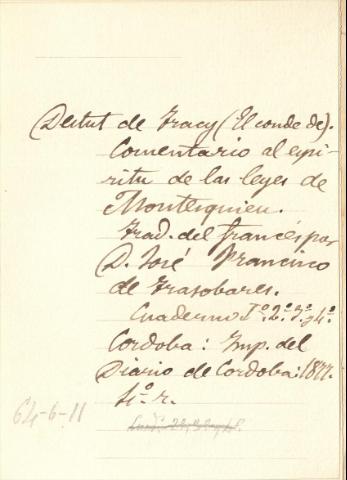 Destut de Tracy (El conde de).
Comentario al espí-
ritu de las leyes de
Montesquieu.
Trad. del francés por
D. José Francisco
de Trasobares.
Cuaderno 1º. 2º. 3º. y 4º.
Cordoba: Imp. del
Diario de Cordoba: 1877.
4º. r.
64-6-11